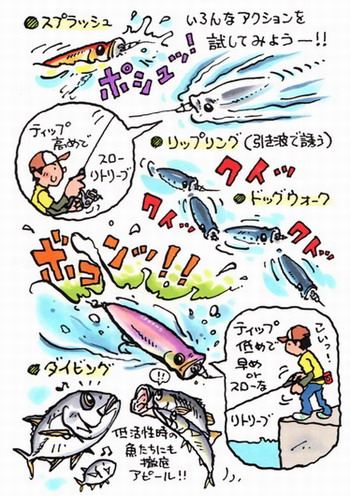 ●スプラッシュ
いろんなアクションを
試してみようー!!
ポシュッ!
ティップ
高めで
スロー
リトリーブ
●リップリング(引き波で誘う)
クイッ
クイッ
クイッ
●ドッグウォーク
ボコンッ!!
ティップ
低めで
早め
or
スローな
リトリーブ
こいっ!
●ダイビング
!!
低活性時の
魚たちにも
徹底
アピール!!